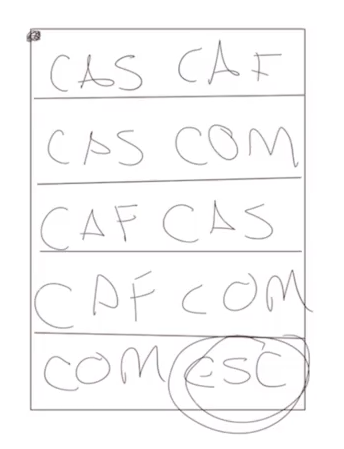 CAS CAF
CAS COM
CAF CAS
CAF COM
COM ESC